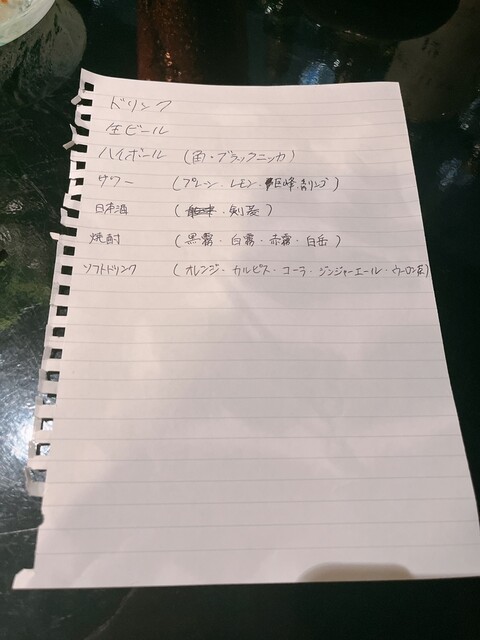 ドリンク
生ビール
ハイボール (角・ブラックニッカ)
サワー (プレーン・レモン・巨峰・青リンゴ)
日本酒 (・剣菱)
焼酎 (黒霧・白霧・赤霧・白岳)
ソフトドリンク (オレンジ・カルピス・コーラ・ジンジャーエール・ウーロン茶)